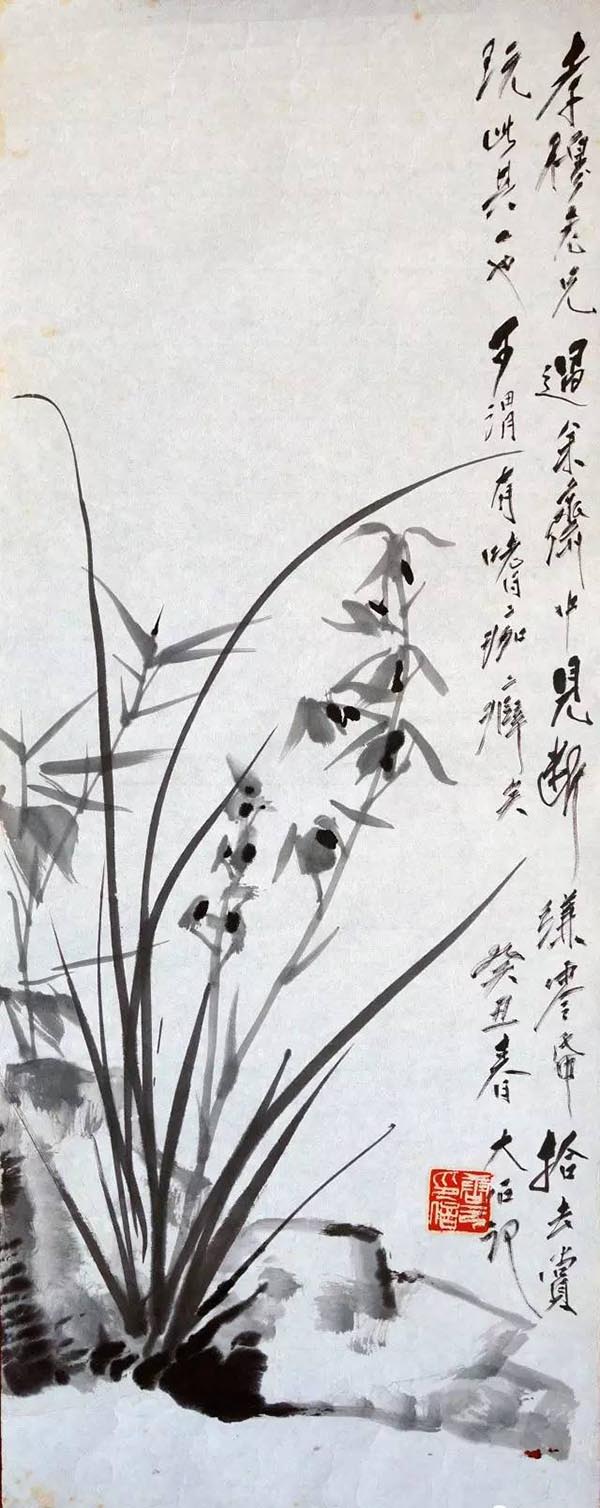 孝穆老兄過余齋中見斷縑零帋拾去賞
玩此其一也可謂有嗜痂之癖矣癸丑春大石記